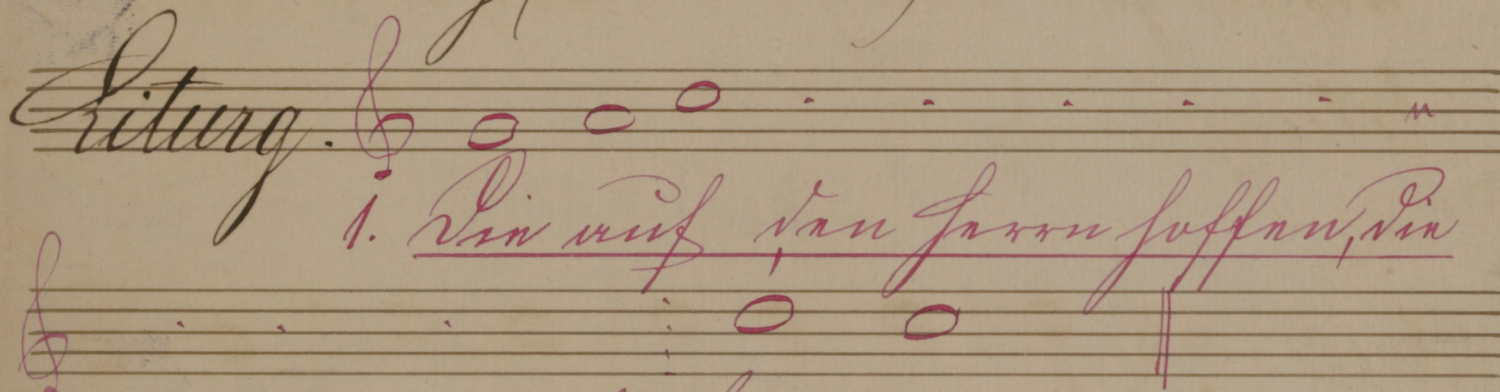 Liturg.
1. Die auf den Herrn hoffen, die